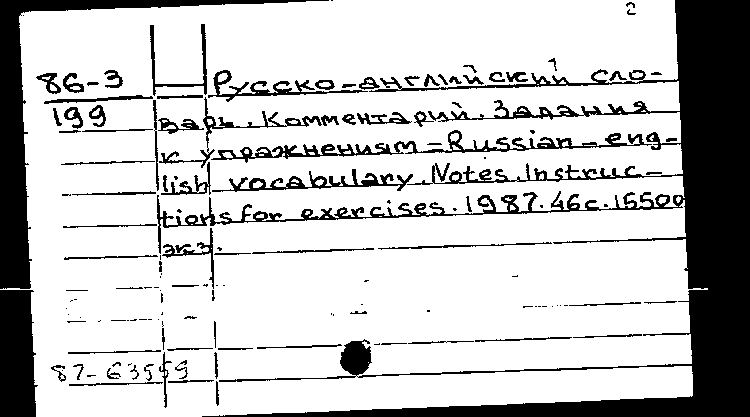 2
86-3 — Русско-английский сло-
199 варь. Комментарий. Задания
к упражнениям = Russian-eng-
lish vocabulary. Notes. Instruc-
tions for exercises. 1987. 46с. 15500
экз.
87-63559